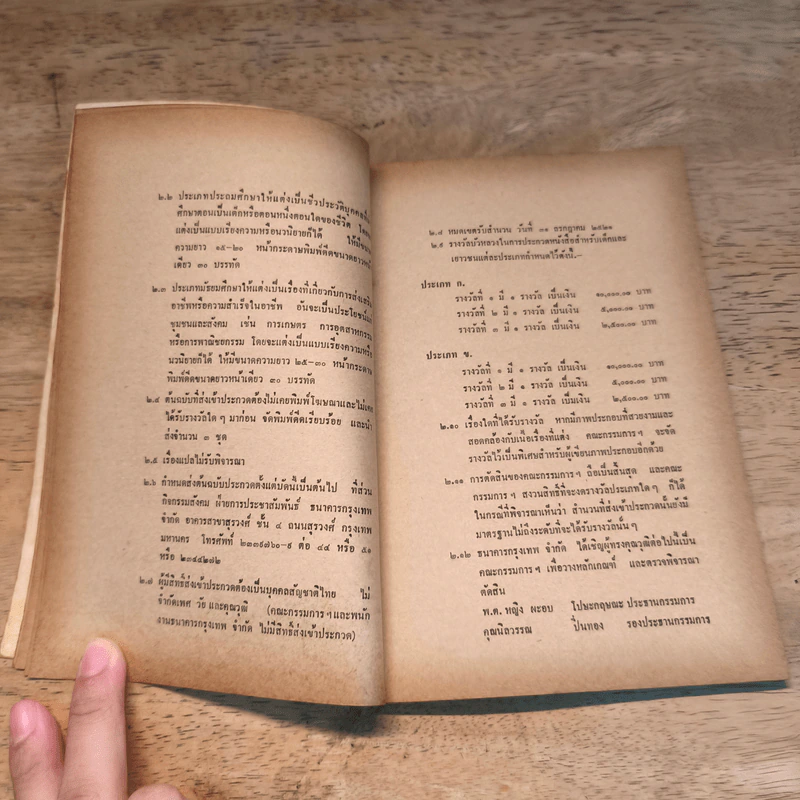 ๒.๒ ประเภทประถมศึกษาให้แต่งเป็นชีวประวัติบุคคลสำ
ศึกษาตอนเป็นเด็กหรือตอนหนึ่งตอนใดของชีวิต
แต่งเป็นแบบเรียงความหรือนวนิยายก็ได้ ให้มีขนาด
ความยาว ๑๕-๒๐ หน้ากระดาษพิมพ์ดีดขนาดยาวหน้า
เดียว ๓๐ บรรทัด
๒.๓ ประเภทมัธยมศึกษาให้แต่งเป็นเรื่องที่เกี่ยวกับการส่งเสริม
อาชีพหรือความสำเร็จในอาชีพ อันจะเป็นประโยชน์แก่
ชุมชนและสังคม เช่น การเกษตร การอุตสาหกรรม
หรือการพาณิชยกรรม โดยจะแต่งเป็นแบบเรียงความหรือ
นวนิยายก็ได้ ให้มีขนาดความยาว ๒๕-๓๐ หน้ากระดาษ
พิมพ์ดีดขนาดยาวหน้าเดียว ๓๐ บรรทัด
๒.๔ ต้นฉบับที่ส่งเข้าประกวดต้องไม่เคยพิมพ์โฆษณาและไม่เคย
ได้รับรางวัลใด ๆ มาก่อน จัดพิมพ์ดีดเรียบร้อย และนำ
ส่งจำนวน ๓ ชุด
๒.๕ เรื่องแปลไม่รับพิจารณา
๒.๖ กำหนดส่งต้นฉบับประกวดตั้งแต่บัดนี้เป็นต้นไป ที่ส่วน
กิจกรรมสังคม ฝ่ายการประชาสัมพันธ์ ธนาคารกรุงเทพ
จำกัด อาคารสาขาสุรวงศ์ ชั้น ๔ ถนนสุรวงศ์ กรุงเทพ
มหานคร โทรศัพท์ ๒๓๓๙๗๖๐-๙ ต่อ ๔๔ หรือ ๕๑
หรือ ๒๓๔๔๒๗๒
๒.๗ ผู้มีสิทธิ์ส่งเข้าประกวดต้องเป็นบุคคลสัญชาติไทย ไม่
จำกัดเพศ วัย และคุณวุฒิ (คณะกรรมการ ฯ และพนัก
งานธนาคารกรุงเทพ จำกัด ไม่มีสิทธิ์ส่งเข้าประกวด)
๒.๘ หมดเขตรับสำนวน วันที่ ๓๑ กรกฎาคม ๒๕๒๑
๒.๙ รางวัลบัวหลวงในการประกวดหนังสือสำหรับเด็กและ
เยาวชนแต่ละประเภทกำหนดไว้ดังนี้.-
ประเภท ก.
รางวัลที่ ๑ มี ๑ รางวัล เป็นเงิน ๑๐,๐๐๐.๐๐ บาท
รางวัลที่ ๒ มี ๑ รางวัล เป็นเงิน ๕,๐๐๐.๐๐ บาท
รางวัลที่ ๓ มี ๑ รางวัล เป็นเงิน ๒,๕๐๐.๐๐ บาท
ประเภท ข.
รางวัลที่ ๑ มี ๑ รางวัล เป็นเงิน ๑๐,๐๐๐.๐๐ บาท
รางวัลที่ ๒ มี ๑ รางวัล เป็นเงิน ๕,๐๐๐.๐๐ บาท
รางวัลที่ ๓ มี ๑ รางวัล เป็นเงิน ๒,๕๐๐.๐๐ บาท
๒.๑๐ เรื่องใดที่ได้รับรางวัล หากมีภาพประกอบที่สวยงามและ
สอดคล้องกับเนื้อเรื่องที่แต่ง คณะกรรมการ ฯ จะจัด
รางวัลไว้เป็นพิเศษสำหรับผู้เขียนภาพประกอบอีกด้วย
๒.๑๑ การตัดสินของคณะกรรมการ ฯ ถือเป็นสิ้นสุด และคณะ
กรรมการ ฯ สงวนสิทธิ์ที่จะงดรางวัลประเภทใด ๆ ก็ได้
ในกรณีที่พิจารณาเห็นว่า สำนวนที่ส่งเข้าประกวดนั้นยังมี
มาตรฐานไม่ถึงระดับที่จะได้รับรางวัลนั้น ๆ
๒.๑๒ ธนาคารกรุงเทพ จำกัด ได้เชิญผู้ทรงคุณวุฒิต่อไปนี้เป็น
คณะกรรมการ ฯ เพื่อวางหลักเกณฑ์ และตรวจพิจารณา
ตัดสิน
พ.ต. หญิง ผะอบ โปษะกฤษณะ ประธานกรรมการ
คุณนิลวรรณ ปิ่นทอง รองประธานกรรมการ